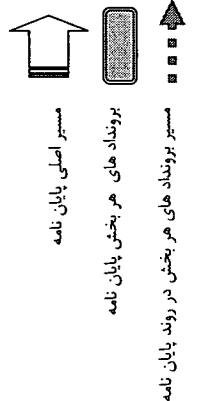 مسیر اصلی پایان نامه
برونداد های هر بخش پایان نامه
مسیر برونداد های هر بخش در روند پایان نامه